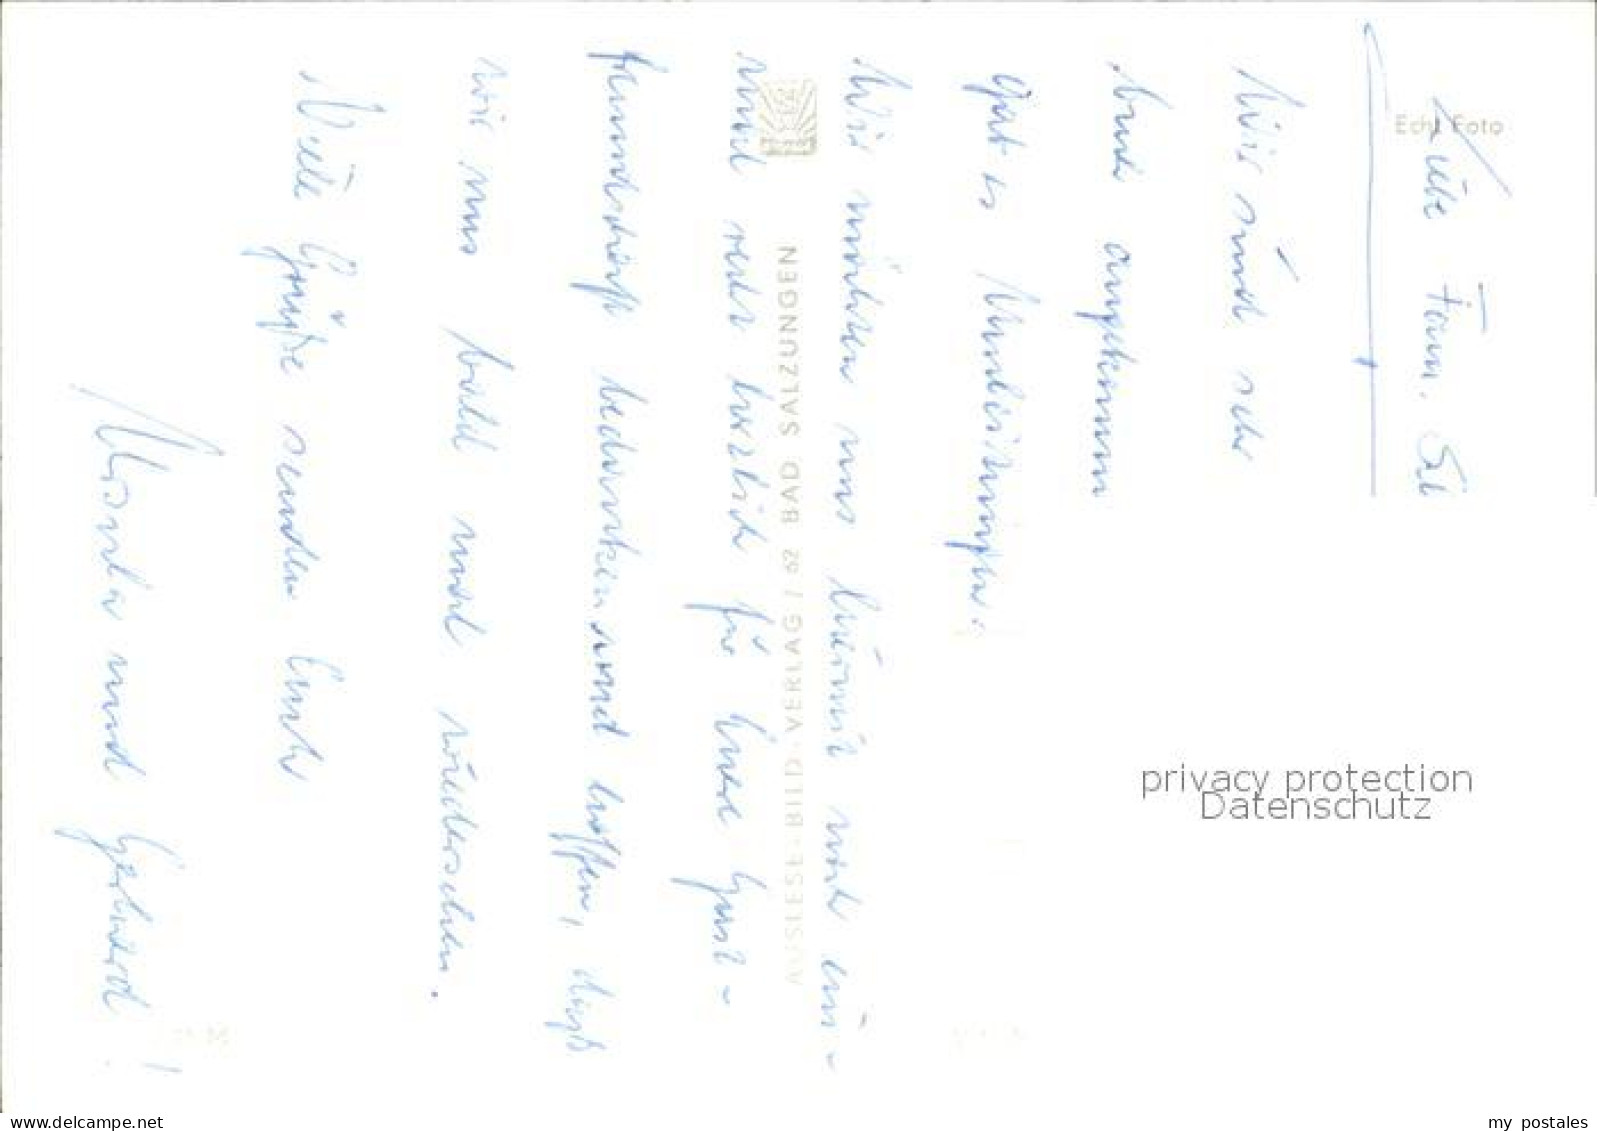 Liebe Fam. Sch
Wir sind sehr
auch angekommen
geht es
Wir möchten uns hiermit noch ein-
mal recht herzlich für Eure Gast-
freundschaft bedanken und hoffen, daß
wir uns bald mal wiedersehen.
Viele Grüße senden Euch
Ursula und Gerhard!
Echt Foto
AUSLESE-BILD-VERLAG / 62 BAD SALZUNGEN
privacy protection
Datenschutz
www.delcampe.net
my_postales